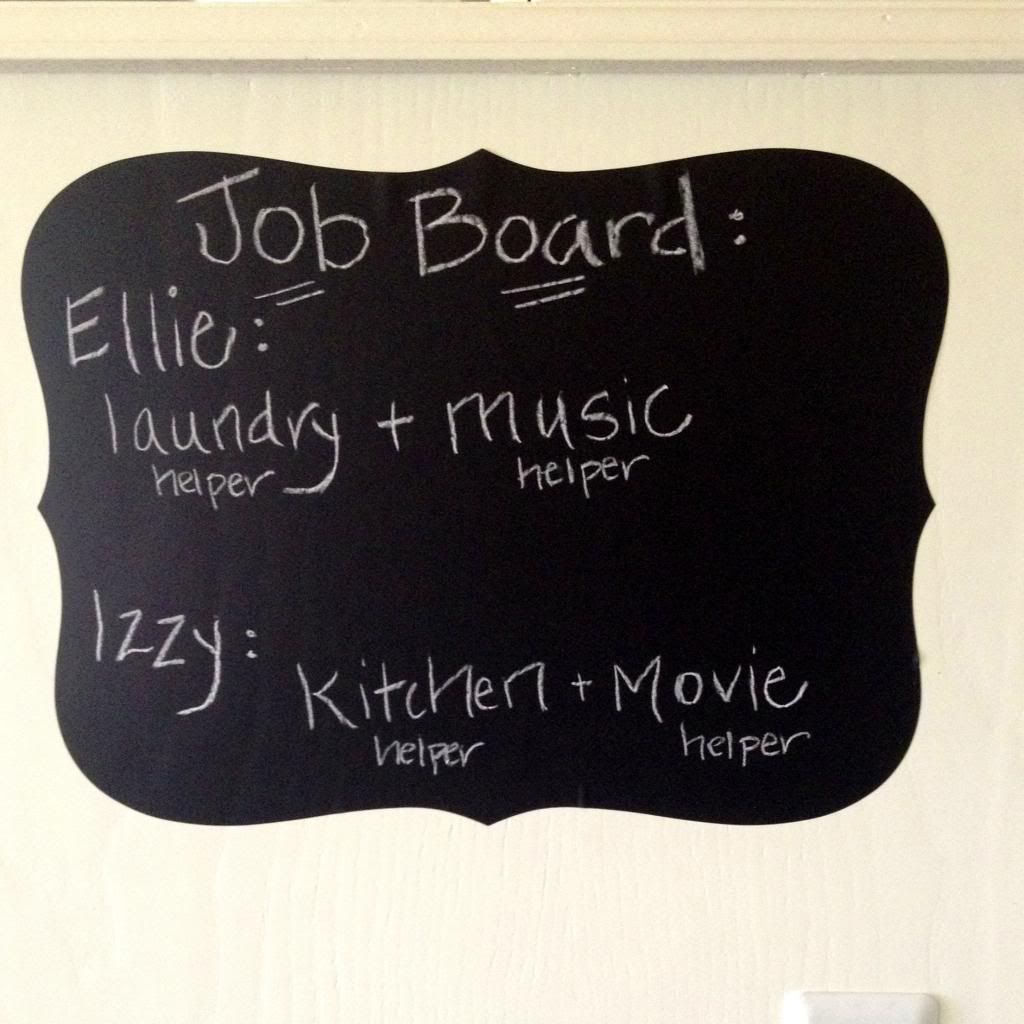 Job Board:
Ellie:
laundry + music
helper helper
Izzy:
Kitchen + Movie
helper helper